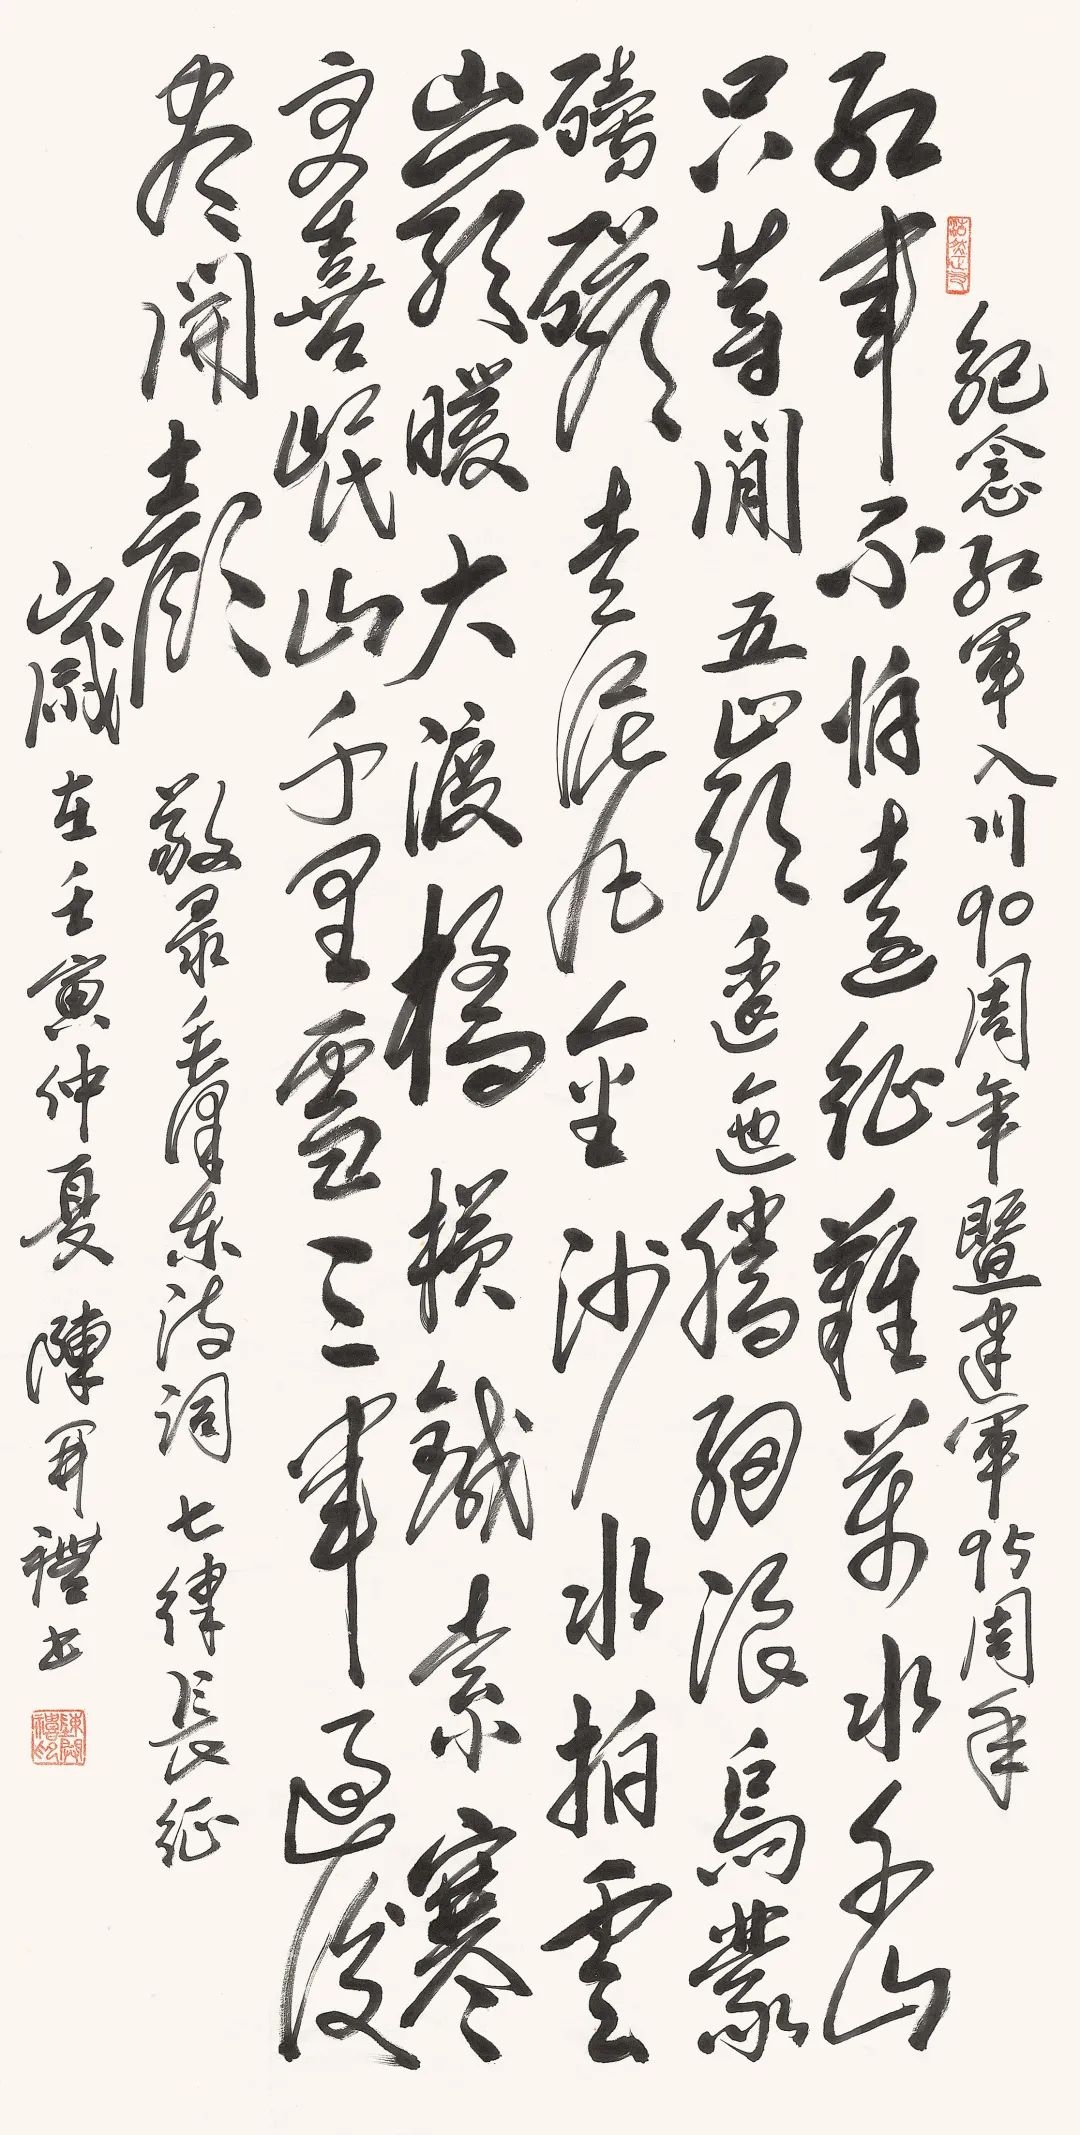 浩然正气
紀念红軍入川90周年暨建軍95周年
红軍不怕遠征難萬水千山
只等閒五嶺逶迤騰细浪烏蒙
磅礴走泥丸金沙水拍雲
崖暖大渡橋横鐵索寒
更喜岷山千里雪三軍過後
尽開顔
敬录毛澤东诗词七律長征
歲在壬寅仲夏陳開禮书
陳開禮印